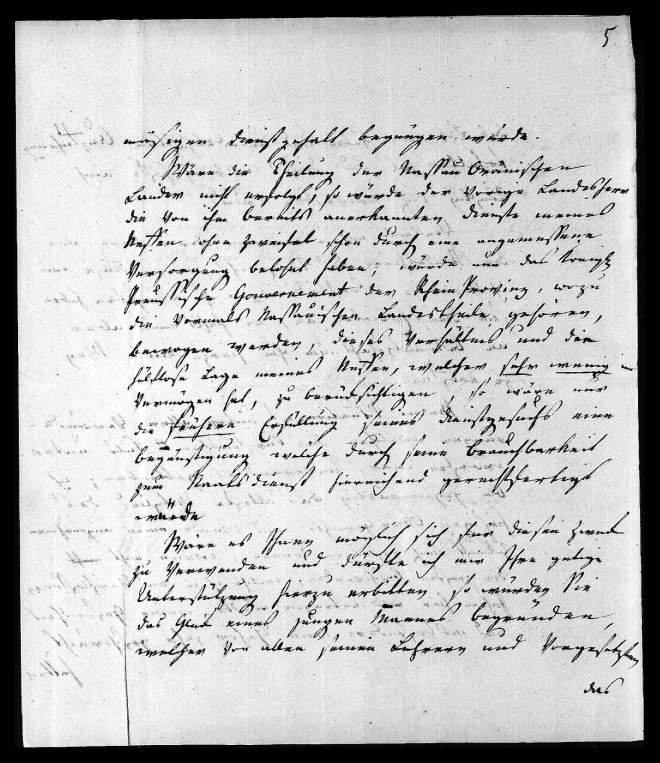 5
mäsigen dienstgehalt begnügen würde.
Wäre die Theilung der Nassau Oranischen
Lander nicht erfolgt, so würde der vorige Landesherr
die von ihm bereits anerkannten dienste meines
Neffen ohne Zweifel schon durch eine angemessene
Versorgung belohnt haben; würde nun das Königl.
Preussische Gouvernement der RheinProvinz, wozu
die vormals Nassauischen Landestheile gehören,
bewogen werden, dieses Verhältnis und die
hülflose Lage meines Neffen, welcher sehr wenig
Vermögen hat, zu berücksichtigen, so wäre nur
die frühere Erfüllung seines dienstgesuchs eine
begünstigung welche durch seine brauchbarkeit
zum Staatsdienst hinreichend gerechtfertigt
würde
Wäre es Ihnen möglich sich für diesen Zweck
zu verwenden und dürfte ich mir Ihre gütige
Unterstützung hierzu erbitten so würden Sie
das Glück eines jungen Mannes begründen,
welcher von allen seinen Lehrern und Vorgesetzten
das